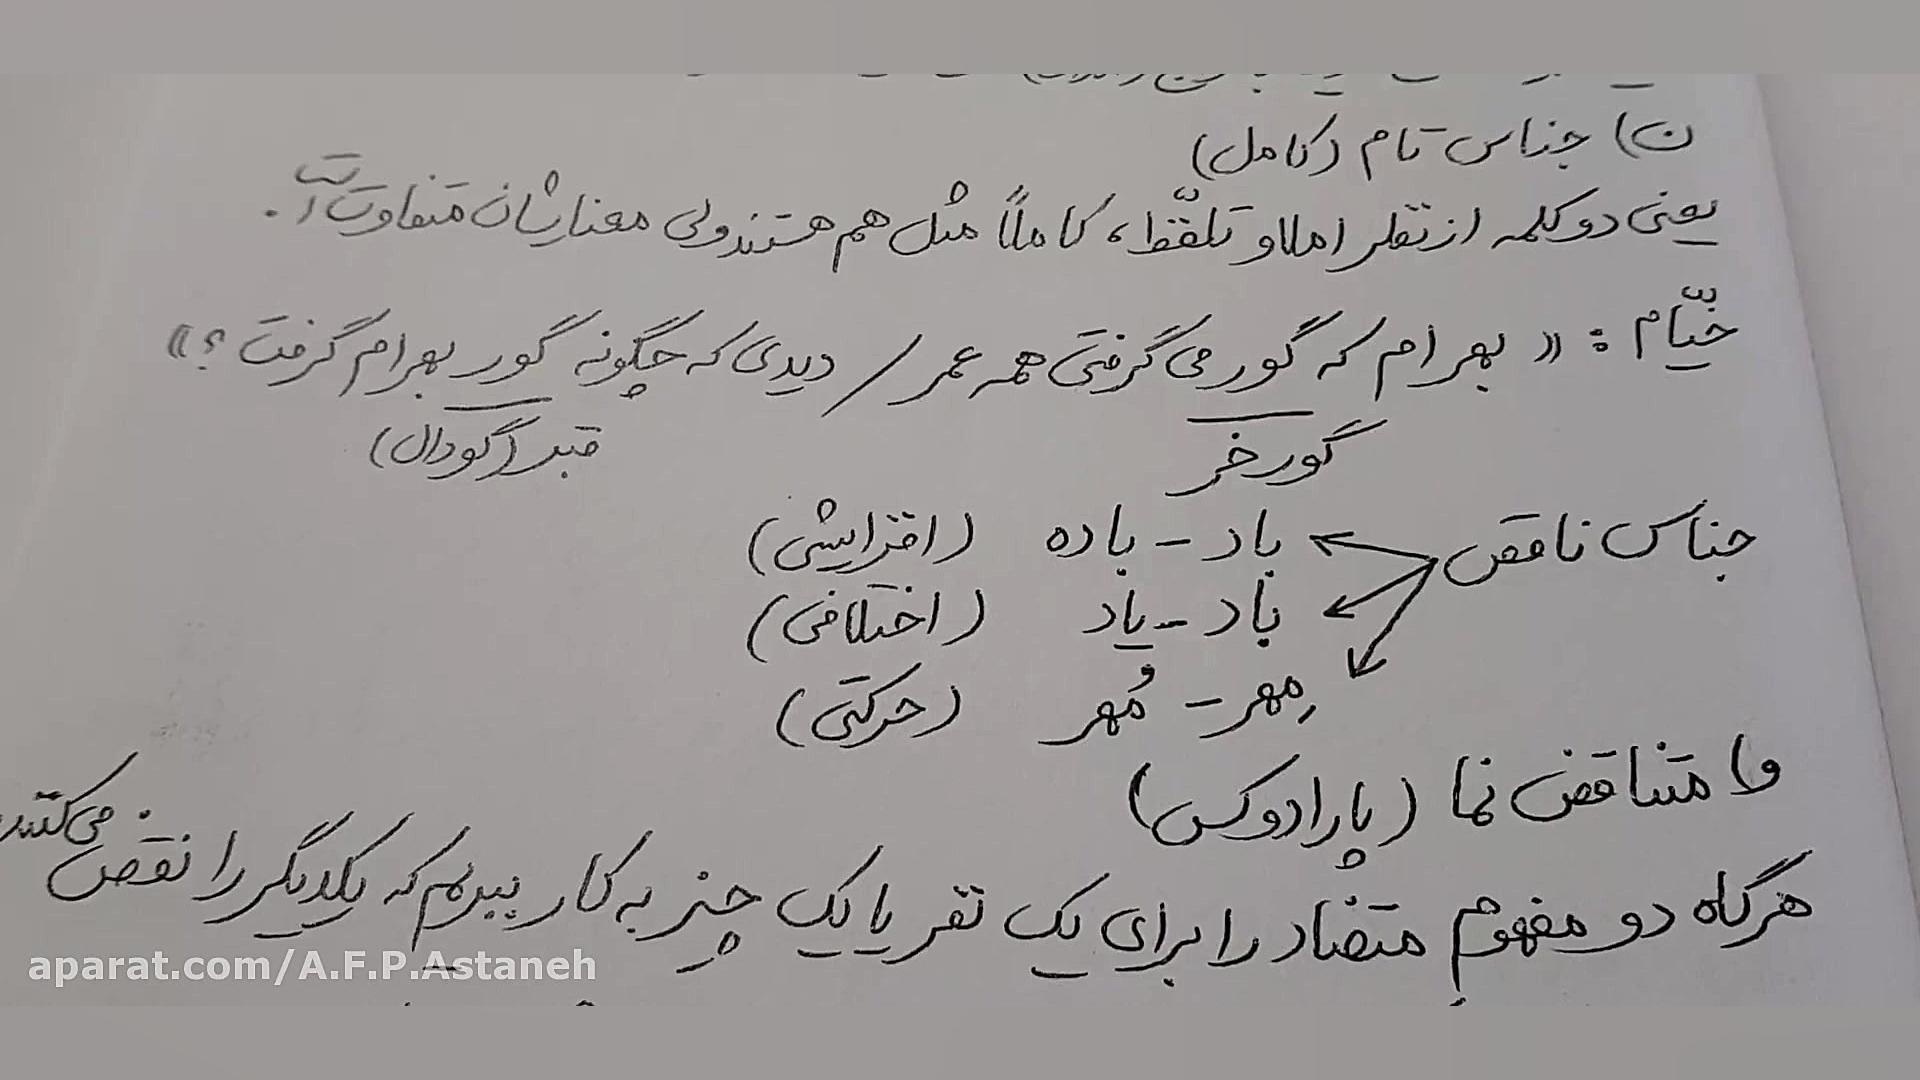 ن) جناس تام (کامل)
یعنی دو کلمه از نظر املا و تلفّظ، کاملاً مثل هم هستند ولی معنایشان متفاوت است.
خیّام : « بهرام که گور می گرفتی همه عمر / دیدی که چگونه گور بهرام گرفت ؟ »
گورخر قبر (گودال)
جناس ناقص باد - باده (افزایشی)
باد - یاد (اختلافی)
مِهر - مُهر (حرکتی)
و) متناقض نما (پارادوکس)
هرگاه دو مفهومِ متضاد را برای یک نفر یا یک چیز به کار ببریم که یکدیگر را نقض می کنند
aparat.com/A.F.P.Astaneh